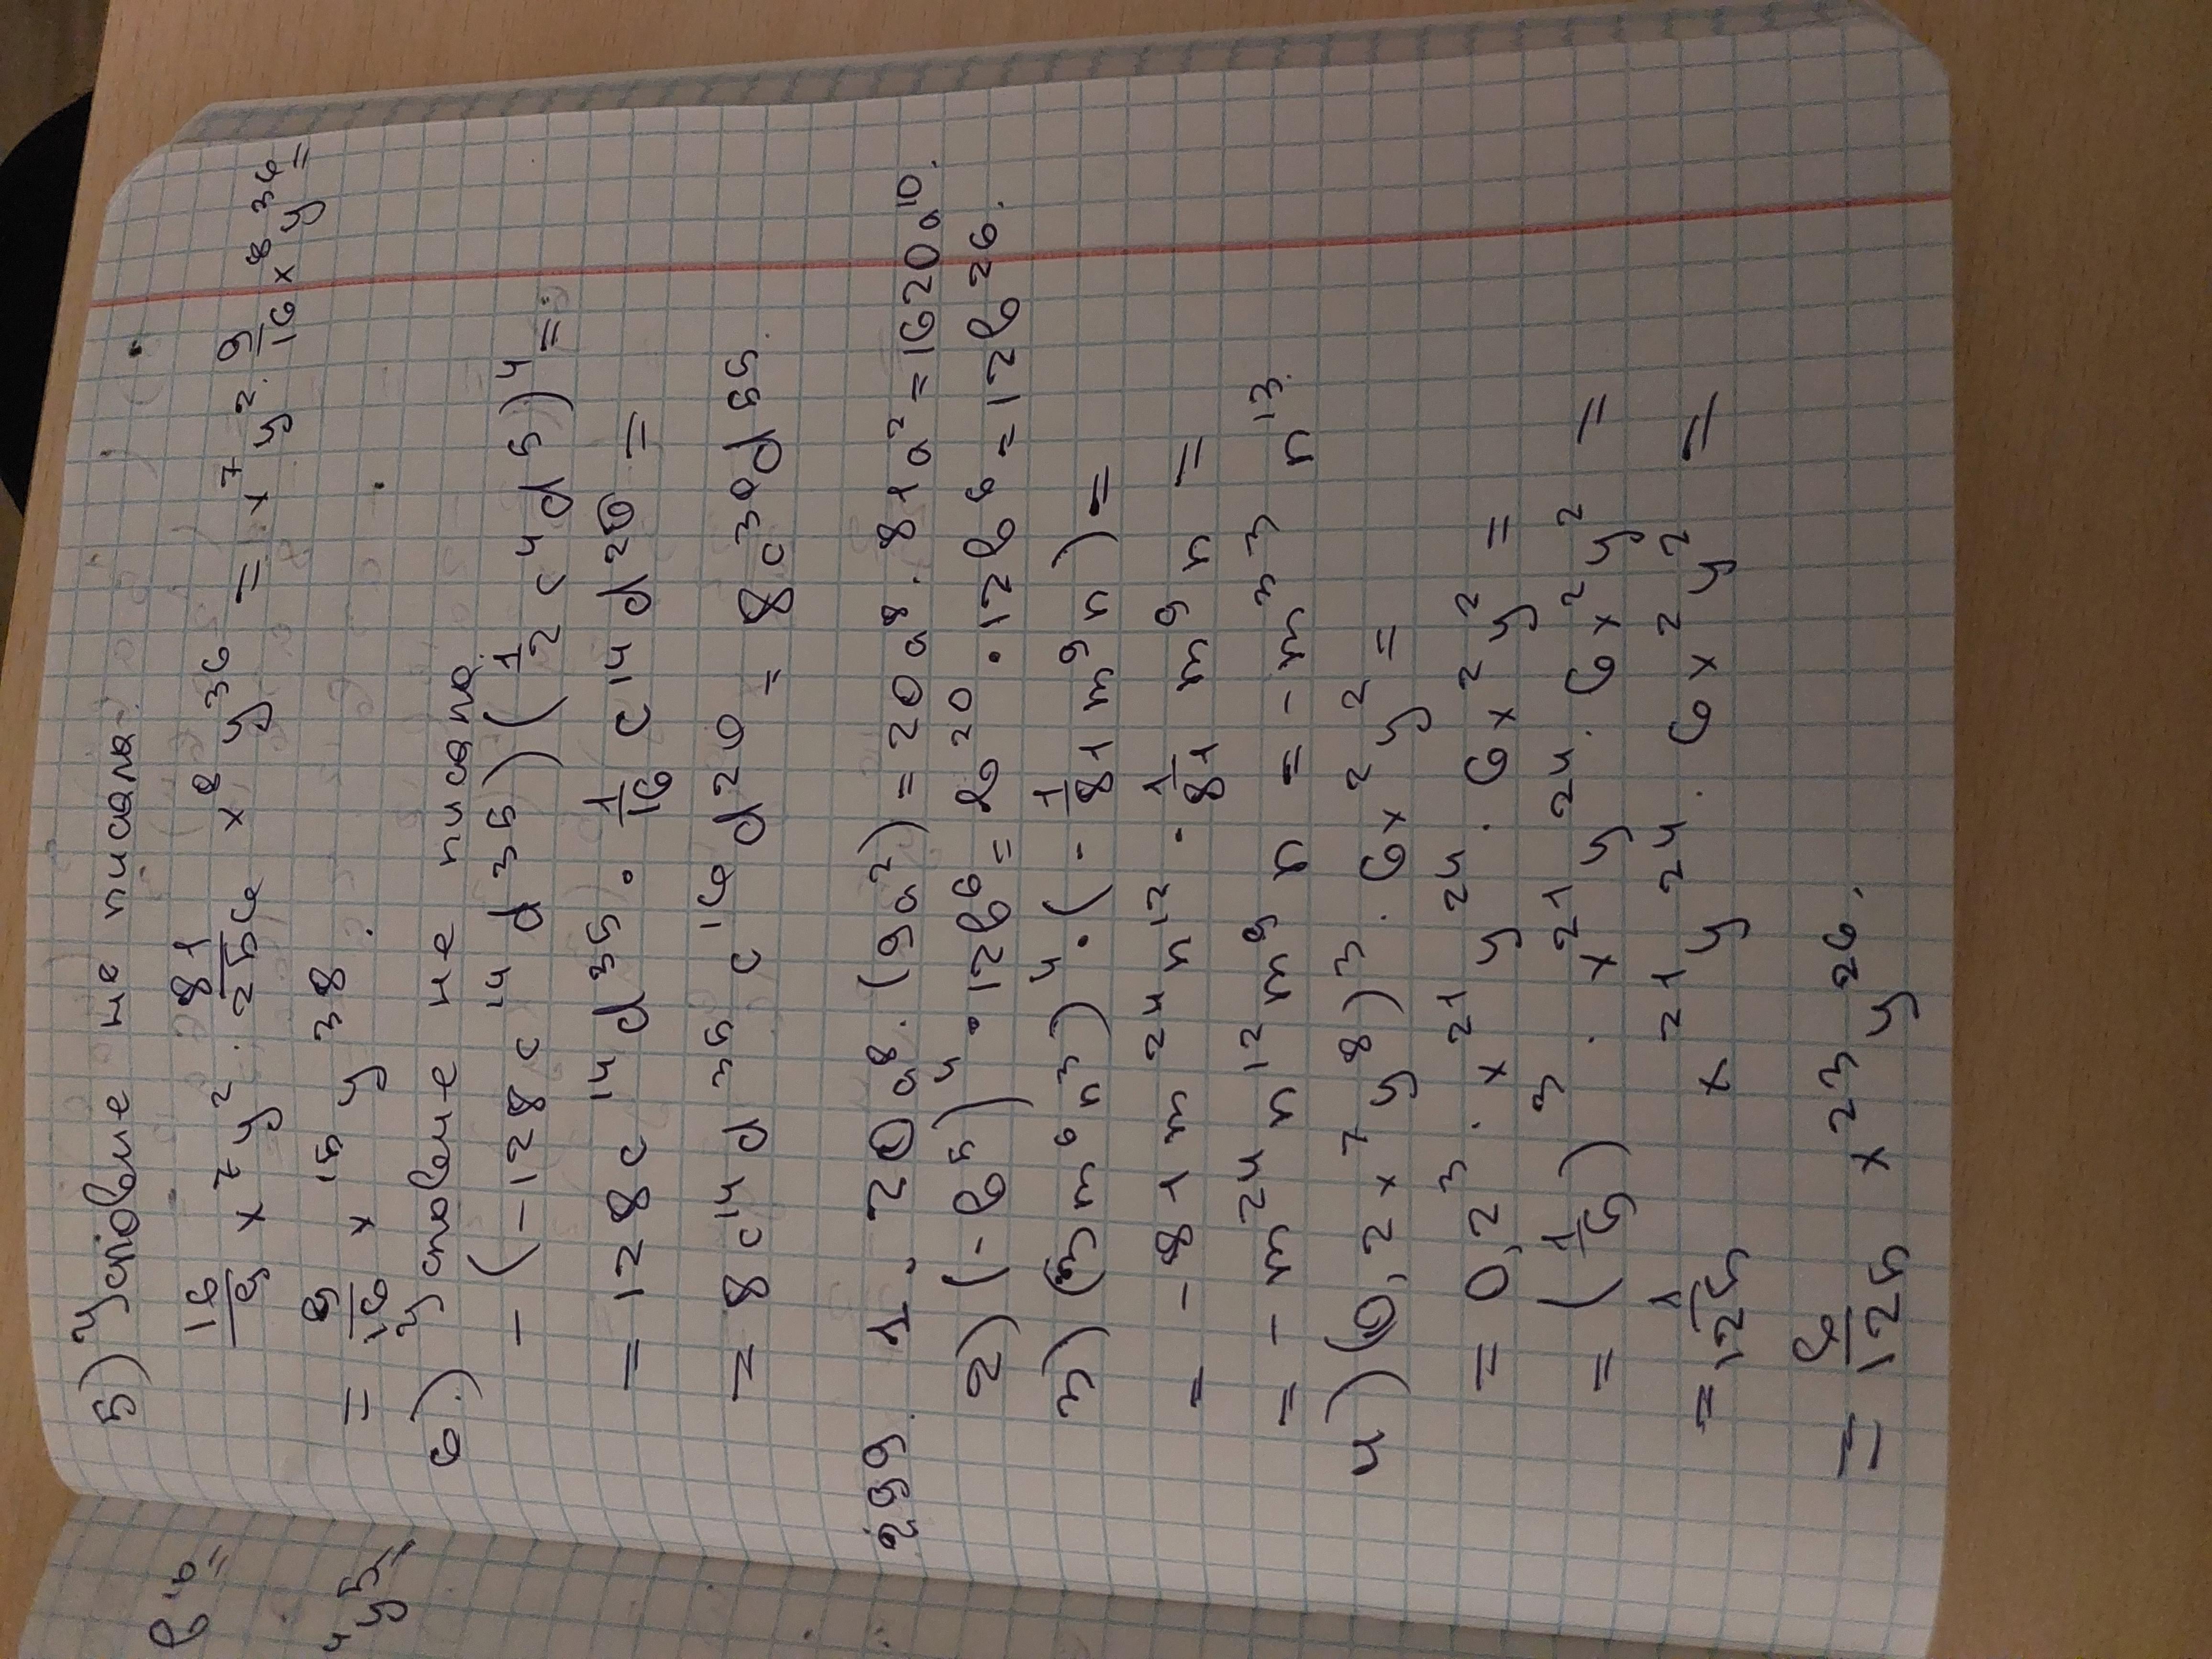 5) Условие не писала.
16/9 x⁷ y² · 81/256 x⁸ y³⁶ = x⁷ y² · 9/16 x⁸ y³⁶ =
= 9/16 x¹⁵ y³⁸.
6) Условие не писала
- (-128 c¹⁴ d³⁵) (1/2 c⁴ d⁵)⁴ =
= 128 c¹⁴ d³⁵ · 1/16 c¹⁴ d²⁰ =
= 8 c¹⁴ d³⁵ c¹⁶ d²⁰ = 8 c³⁰ d⁵⁵.
299. 1. 20a⁸ · (9a²) = 20a⁸ · 81a² = 1620a¹⁰.
2) (-b⁵)⁴ · 12b⁶ = b²⁰ · 12b⁶ = 12b²⁶.
3) (3m⁶n³)⁴ · (- 1/81 m⁹n) =
= - 81m²⁴n¹² · 1/81 m⁹n =
= - m²⁴n¹²m⁹n = - m³³ n¹³.
4) (0,2x⁷y⁸)³ · 6x²y² =
= 0,2³ · x²¹y²⁴ · 6x²y² =
= (1/5)³ · x²¹y²⁴ · 6x²y² =
= 1/125 x²¹y²⁴ · 6x²y² =
= 6/125 x²³y²⁶.
b¹⁶ =
⁴y⁵ =